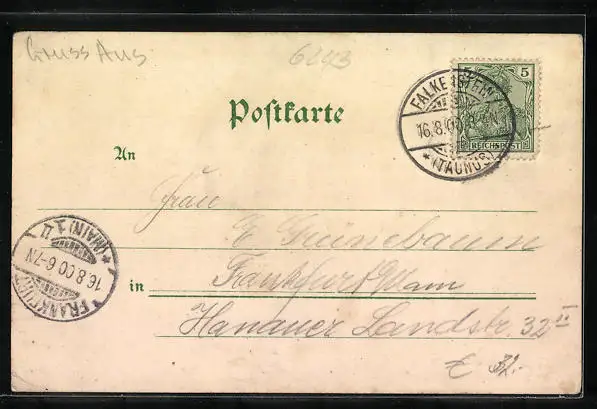 Gruss Aus
6243
5 5
REICHSPOST
FALKENSTEIN
16.8.00
*(TAUNUS)*
Postkarte
An
Frau
E Grünebaum
in Frankfurt Main
Hanauer Landstr. 32 II
€ 32.-
FRANKFURT
16.8.00 6-7N
*(MAIN) 1